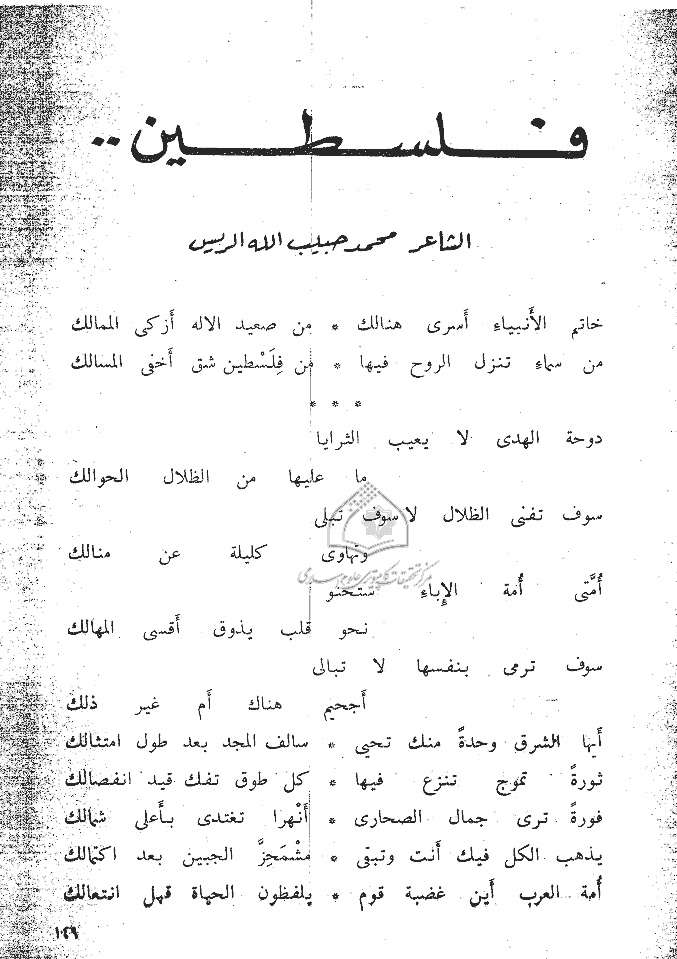 فلسطين ..
الشاعر محمد حبيب الله الريس
خاتم الأنبياء أسرى هنالك * من صعيد الاله أزكى الممالك
من سماء تنزل الروح فيها * من فِلَسْطين شق أخفى المسالك
* * *
دوحة الهدى لا يعيب الثرايا
ما عليها من الظلال الحوالك
سوف تفنى الظلال لا سوف تبلى
وتهاوى كليلة عن منالك
أُمَّتى أُمة الإِباء ستحنو
نحو قلب يذوق أَقسى المهالك
سوف ترمى بنفسها لا تبالى
أَجحيم هناك أم غير ذلك
أَيها الشرق وحدةً منك تحيى * سالف المجد بعد طول امتثالك
ثورةً تموج تنزع فيها * كل طوق تفك قيد انفصالك
فورةً ترى جمال الصحارى * أَنْهرا تغتدى بأَعلى شمالك
يذهب الكل فيك أَنت وتبقى * مشْمَخِرَّ الجبين بعد اكتمالك
أُمة العرب أَين غضبة قوم * يلفظون الحياة قبل انتعالك
مركز تحقيقات كامپيوترى علوم اسلامى
١٠٢٩